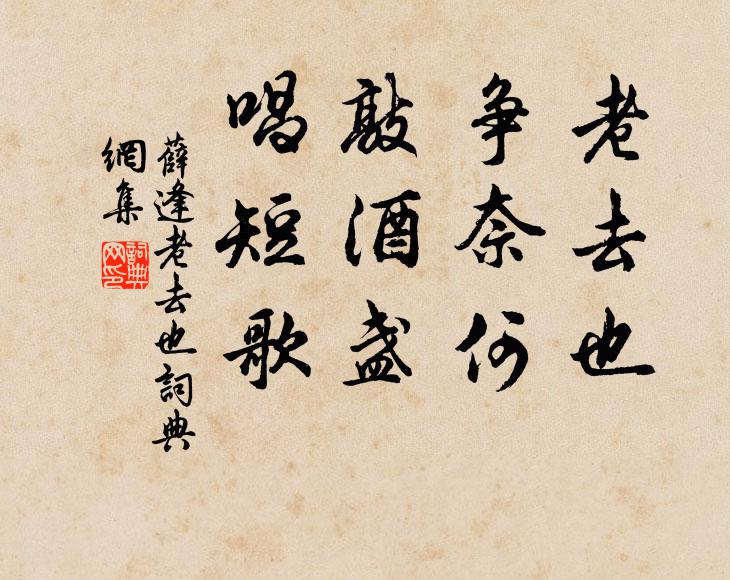 老去也
争奈何
敲酒盏
唱短歌
薛逢老去也詞典
網集
詞典
网印